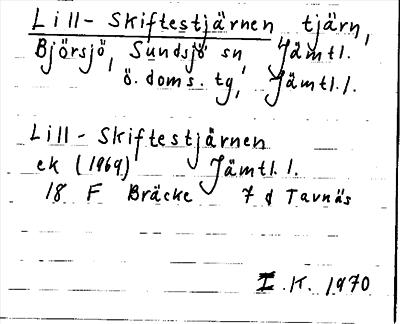 Lill-Skiftestjärnen tjärn,
Björsjö, Sundsjö sn, Jämtl.
ö. doms. tg, Jämtl. l.
Lill-Skiftestjärnen
ek (1969) Jämtl. l.
18 F Bräcke 7 d Tavnäs
I. K. 1970